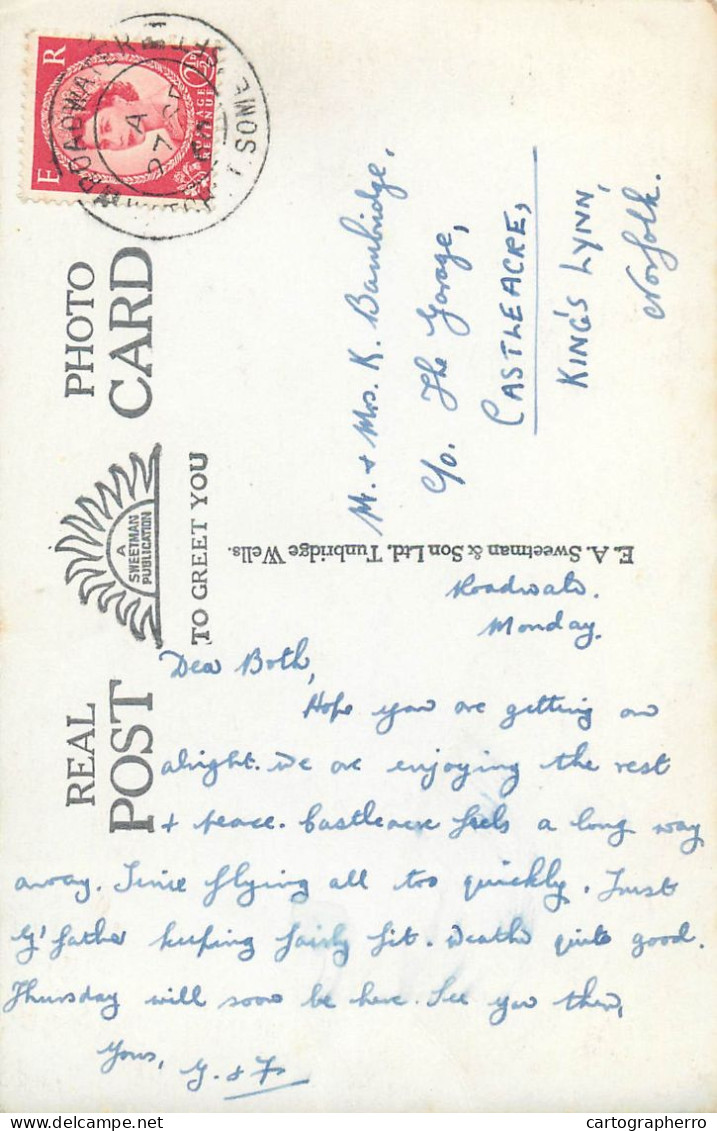 E R
POSTAGE REVENUE
2½D
BROADWATER
A
27 SE
SOME
REAL PHOTO
POST CARD
A
SWEETMAN
PUBLICATION
TO GREET YOU
E. A. Sweetman & Son Ltd. Tunbridge Wells.
Mr. & Mrs. K. Bambridge,
C/o. The Garage,
CASTLEACRE,
KING'S LYNN,
Norfolk.
Monday.
Dea Both,
Hope you are getting on
alright. We are enjoying the rest
+ peace. Castleacre feels a long way
away. Time flying all too quickly. Trust
G'father keeping fairly fit. Weather quite good.
Thursday will soon be here. See you then,
Yours,
G. & F.
Delcampe.net
cartographerro